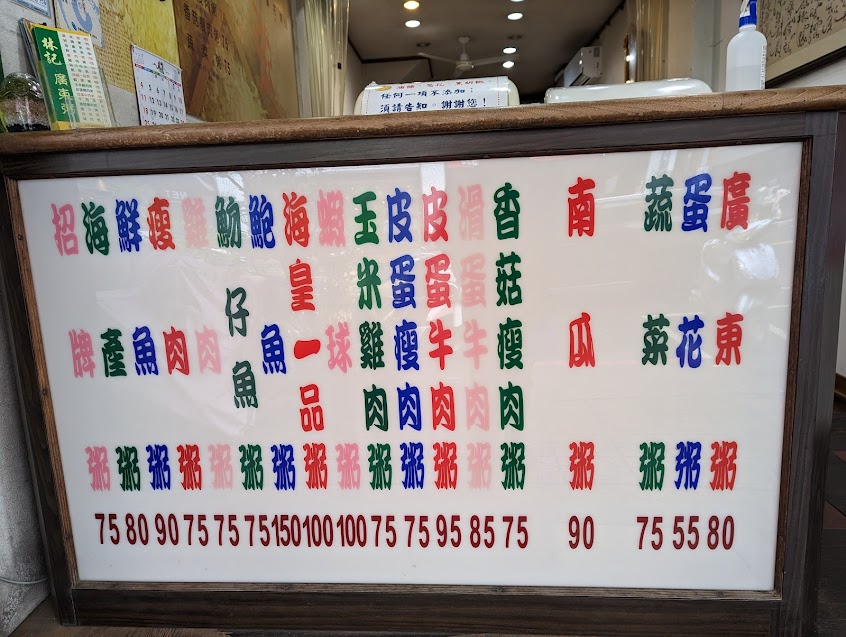 林記
廣東粥
油條 蔥花 黑胡椒
任何一項不添加：
須請告知。謝謝您！
廣東粥 80
蛋花粥 55
蔬菜粥 75
南瓜粥 90
香菇瘦肉粥 75
滑蛋牛肉粥 85
皮蛋牛肉粥 95
皮蛋瘦肉粥 75
玉米雞肉粥 75
蝦球粥 100
海皇一品粥 100
鮑魚粥 150
魩仔魚粥 75
雞肉粥 75
瘦肉粥 75
鮮魚粥 90
海產粥 80
招牌粥 75